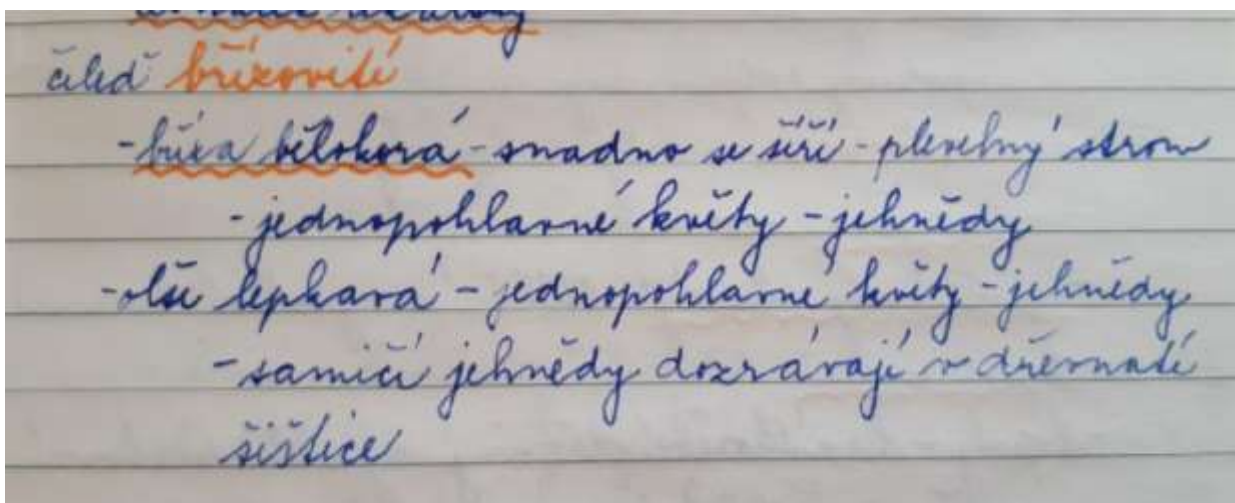 čeleď břízovité
- bříza bělokorá - snadno se šíří - plevelný strom
- jednopohlavné květy - jehnědy
- olše lepkavá - jednopohlavné květy - jehnědy
- samičí jehnědy dozrávají v dřevnaté
šištice